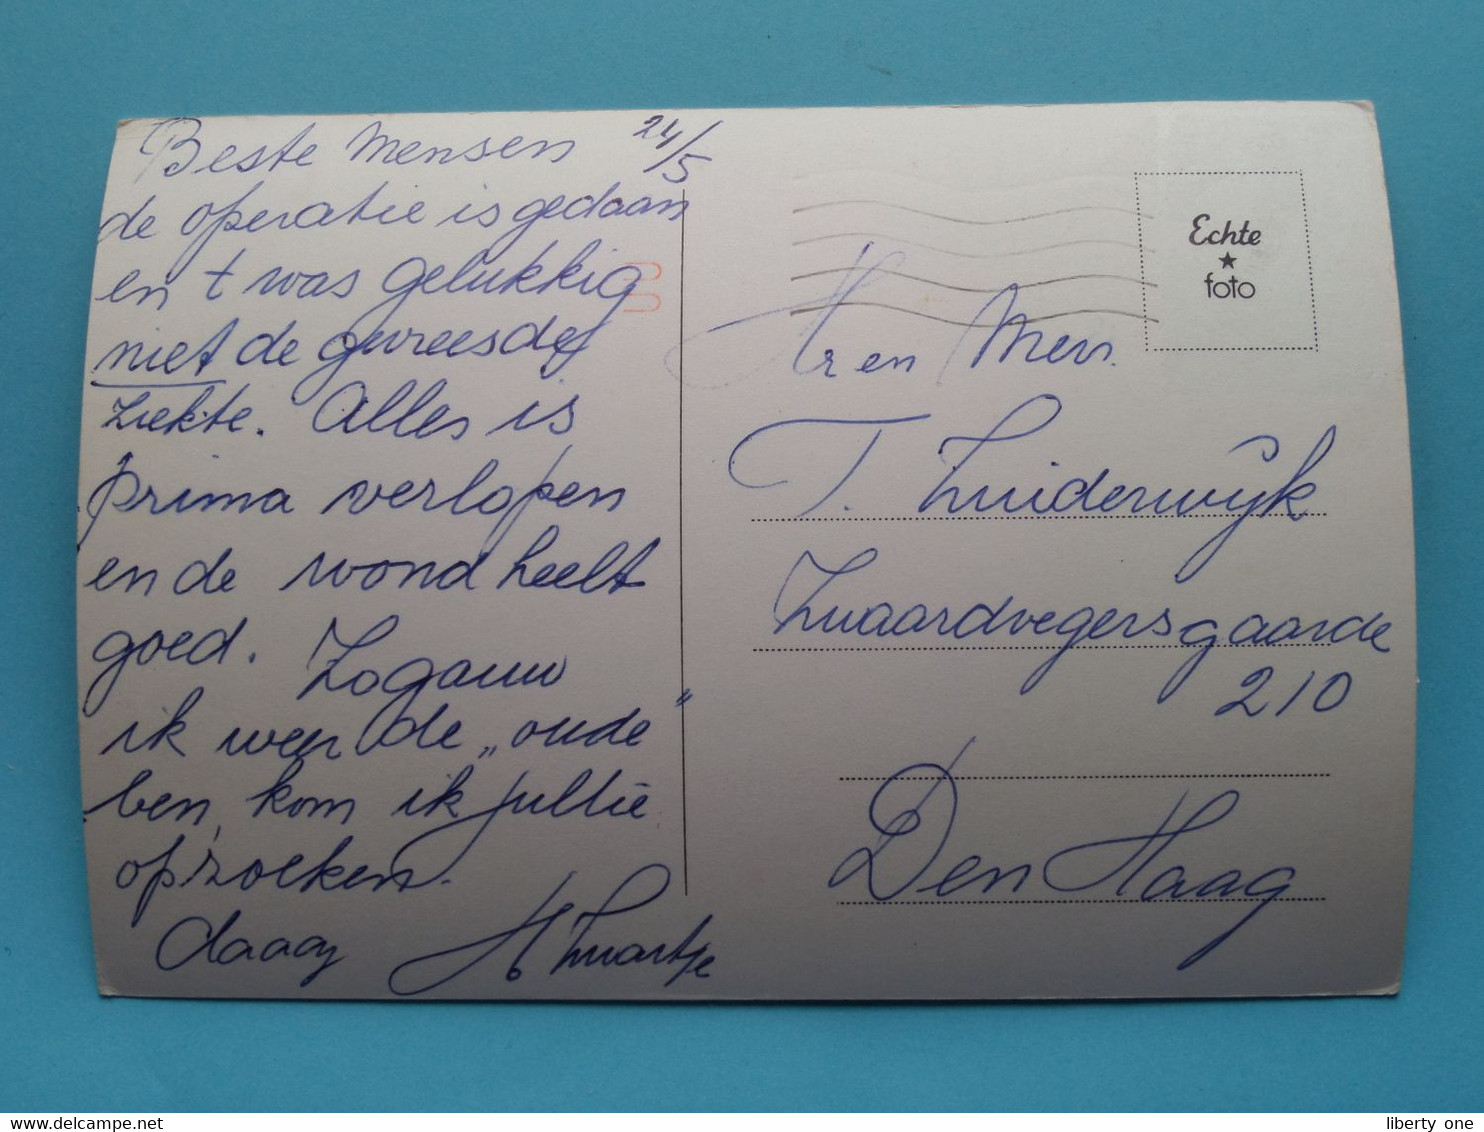 Beste Mensen 24/5
de operatie is gedaan
en t was gelukkig
niet de gevreesde
ziekte. Alles is
prima verlopen
en de wond heelt
goed. Zogauw
ik weer de „oude”
ben, kom ik jullie
opzoeken.
daaag H Zwartje
Echte
foto
Hr en Mevr.
T. Zuiderwijk
Zwaardvegersgaarde
210
Den Haag
liberty one